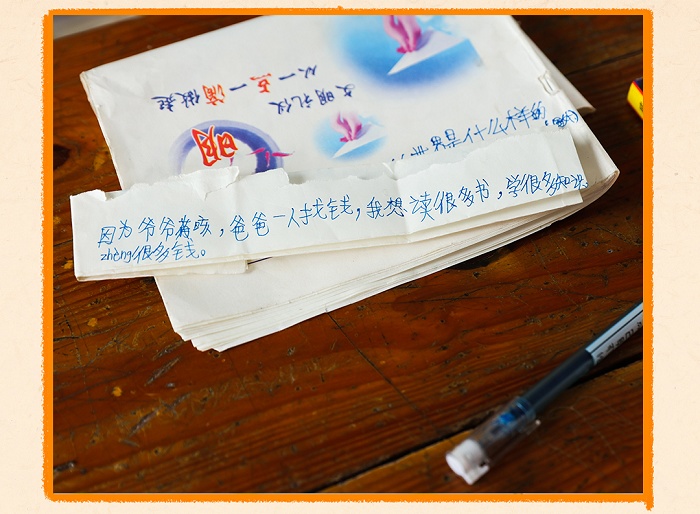 文明礼仪
从一点一滴做起
明
什么样的
因为爷爷咳，爸爸一人找钱，我想读很多书，学很多知识，
zhèng很多钱。